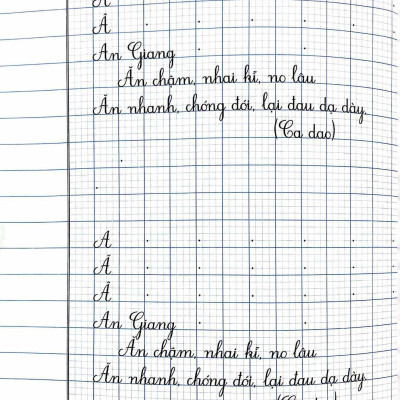 Â
An Giang
Ăn chậm, nhai kĩ, no lâu
Ăn nhanh, chóng đói, lại đau dạ dày.
(Ca dao)
A
Ă
Â
An Giang
Ăn chậm, nhai kĩ, no lâu
Ăn nhanh, chóng đói, lại đau dạ dày.